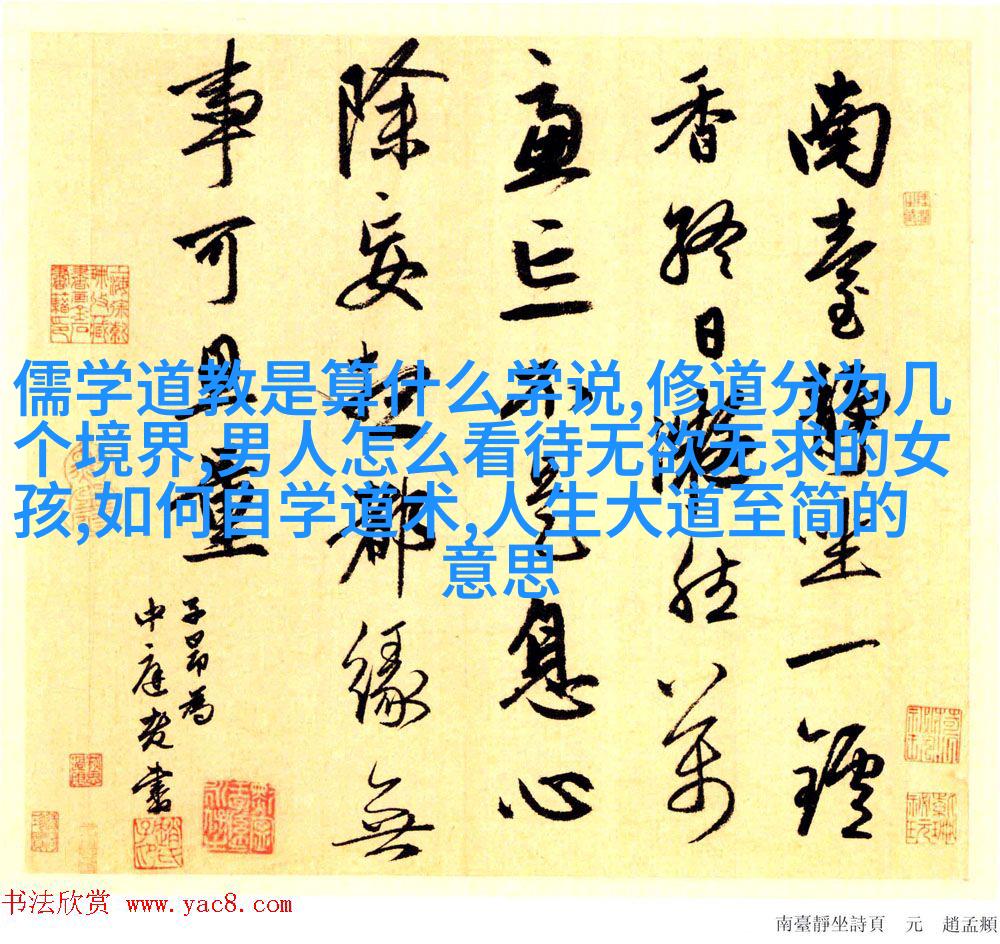 南臺靜坐一鑪
香終日凝然萬
慮亡不是息心
除妄想都緣無
事可思量
子昂為
中庭老書
儒学道教是算什么学说,修道分为几
个境界,男人怎么看待无欲无求的女
孩,如何自学道术,人生大道至简的
意思
书法欣赏 www.yac8.com
南臺靜坐詩頁 元 趙孟頫